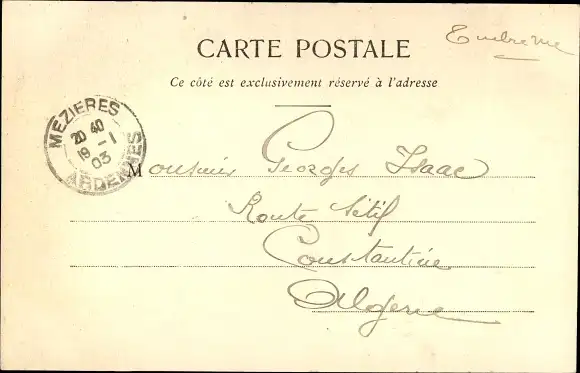 CARTE POSTALE
Ce côté est exclusivement réservé à l'adresse
MEZIERES
20 40
19 -1
03
ARDENNES
Monsieur Georges Isaac
Route Sétif
Constantine
Algérie